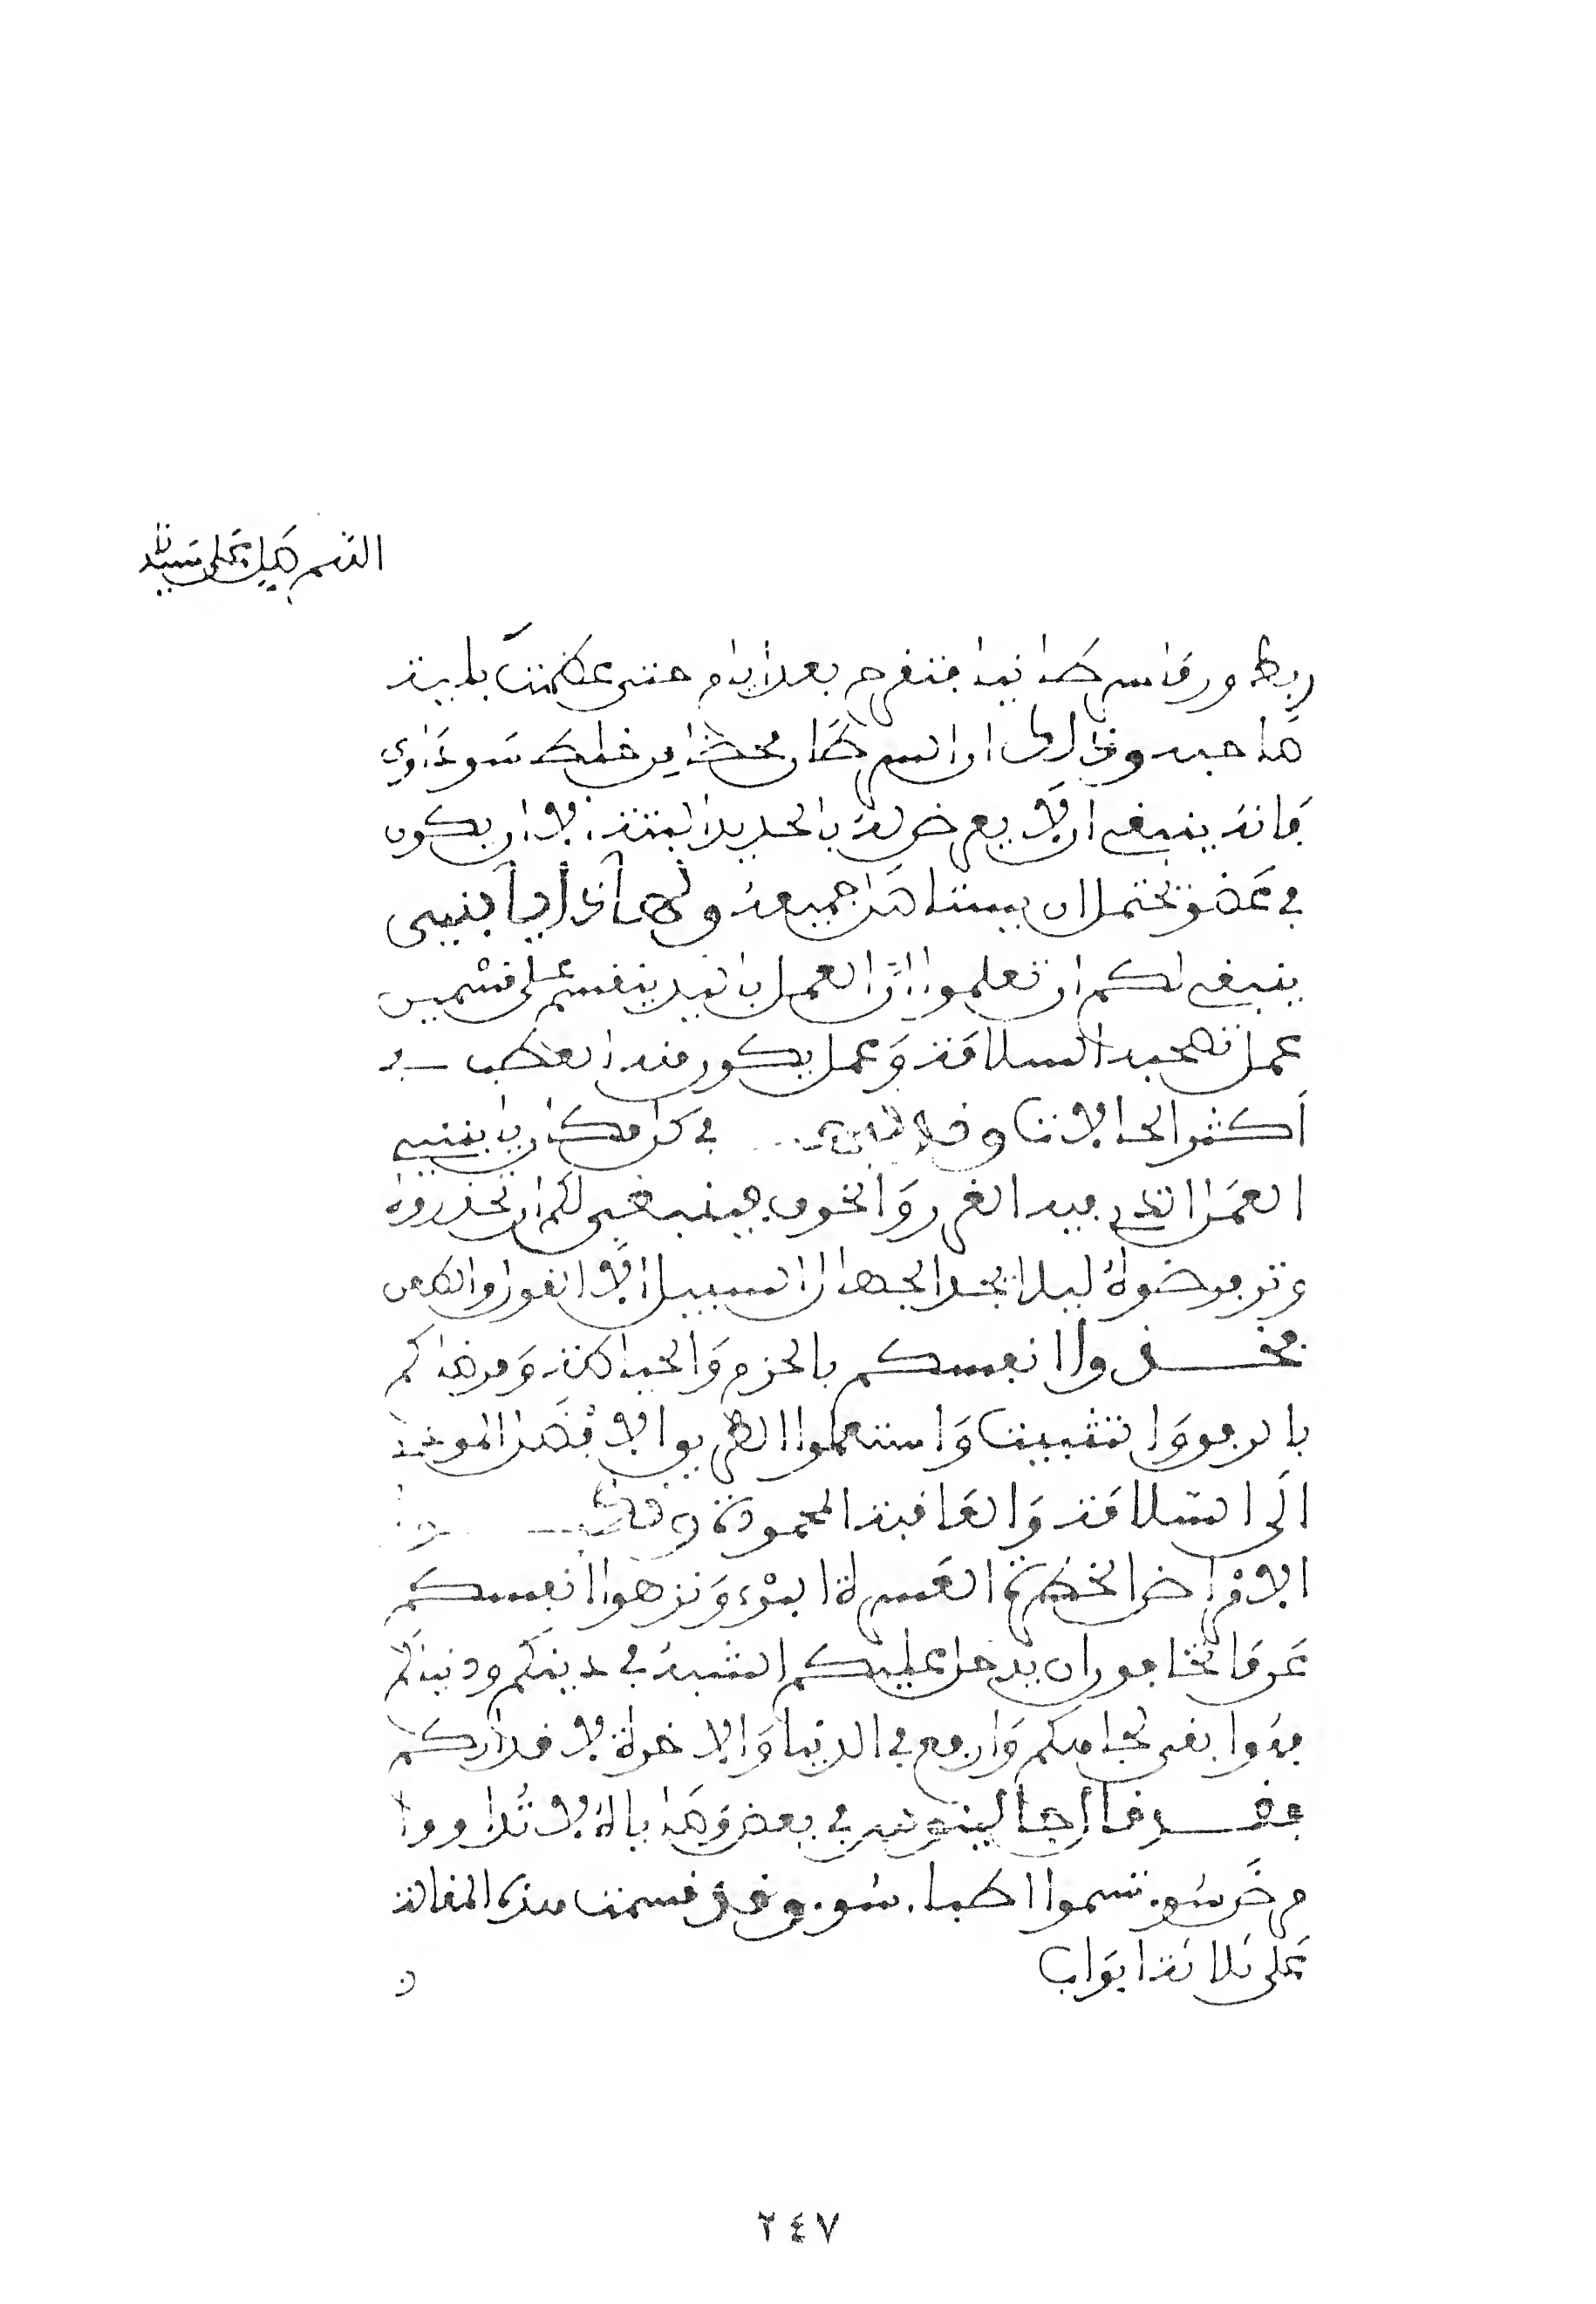 اللهم صل على سيدنا
ربط ورم سرطانيا فتقرح بعد ايام حتى عظمت بلية
صاحبه وذلك ان السرطان محضا من خلط سوداوي
فانه ينبغي ان لا يعرض له بالحديد البتة الا ان يكون
في عضو تحتمل ان يستاصل جميعه ولهاذا يا بني
ينبغي لكم ان تعلموا ان العمل باليد ينقسم على قسمين
عمل تصحبه السلامة وعمل يكون منه العطب في
أكثر الحالات وقد في كل مكان يا بني
العمل الذي فيه الغرر والخوف فينبغي لكم ان تحذروه
وترفضوه ليلا يجد الجهال السبيل الى القول والطعن
فخذوا انفسكم بالحزم والحياطة ومرضاكم
بالرفق والتثبيت واستعملوا الطريق الافضل الموخد
الى السلامة والعاقبة المحمودة
الامراض الخطرة العسرة البرء ونزهوا انفسكم
عن ما تخافون ان يدخل عليكم الشبه في دينكم ودنياكم
فهو ابقى لجاهكم وارفع في الدنيا والاخرة لاقداركم
فقد قال جالينوس في بعض وصاياه لا تداووا
مرض سوء تسموا اطباء سوء وقد قسمت هذه المقالة
على ثلاثة ابواب
٢٤٧